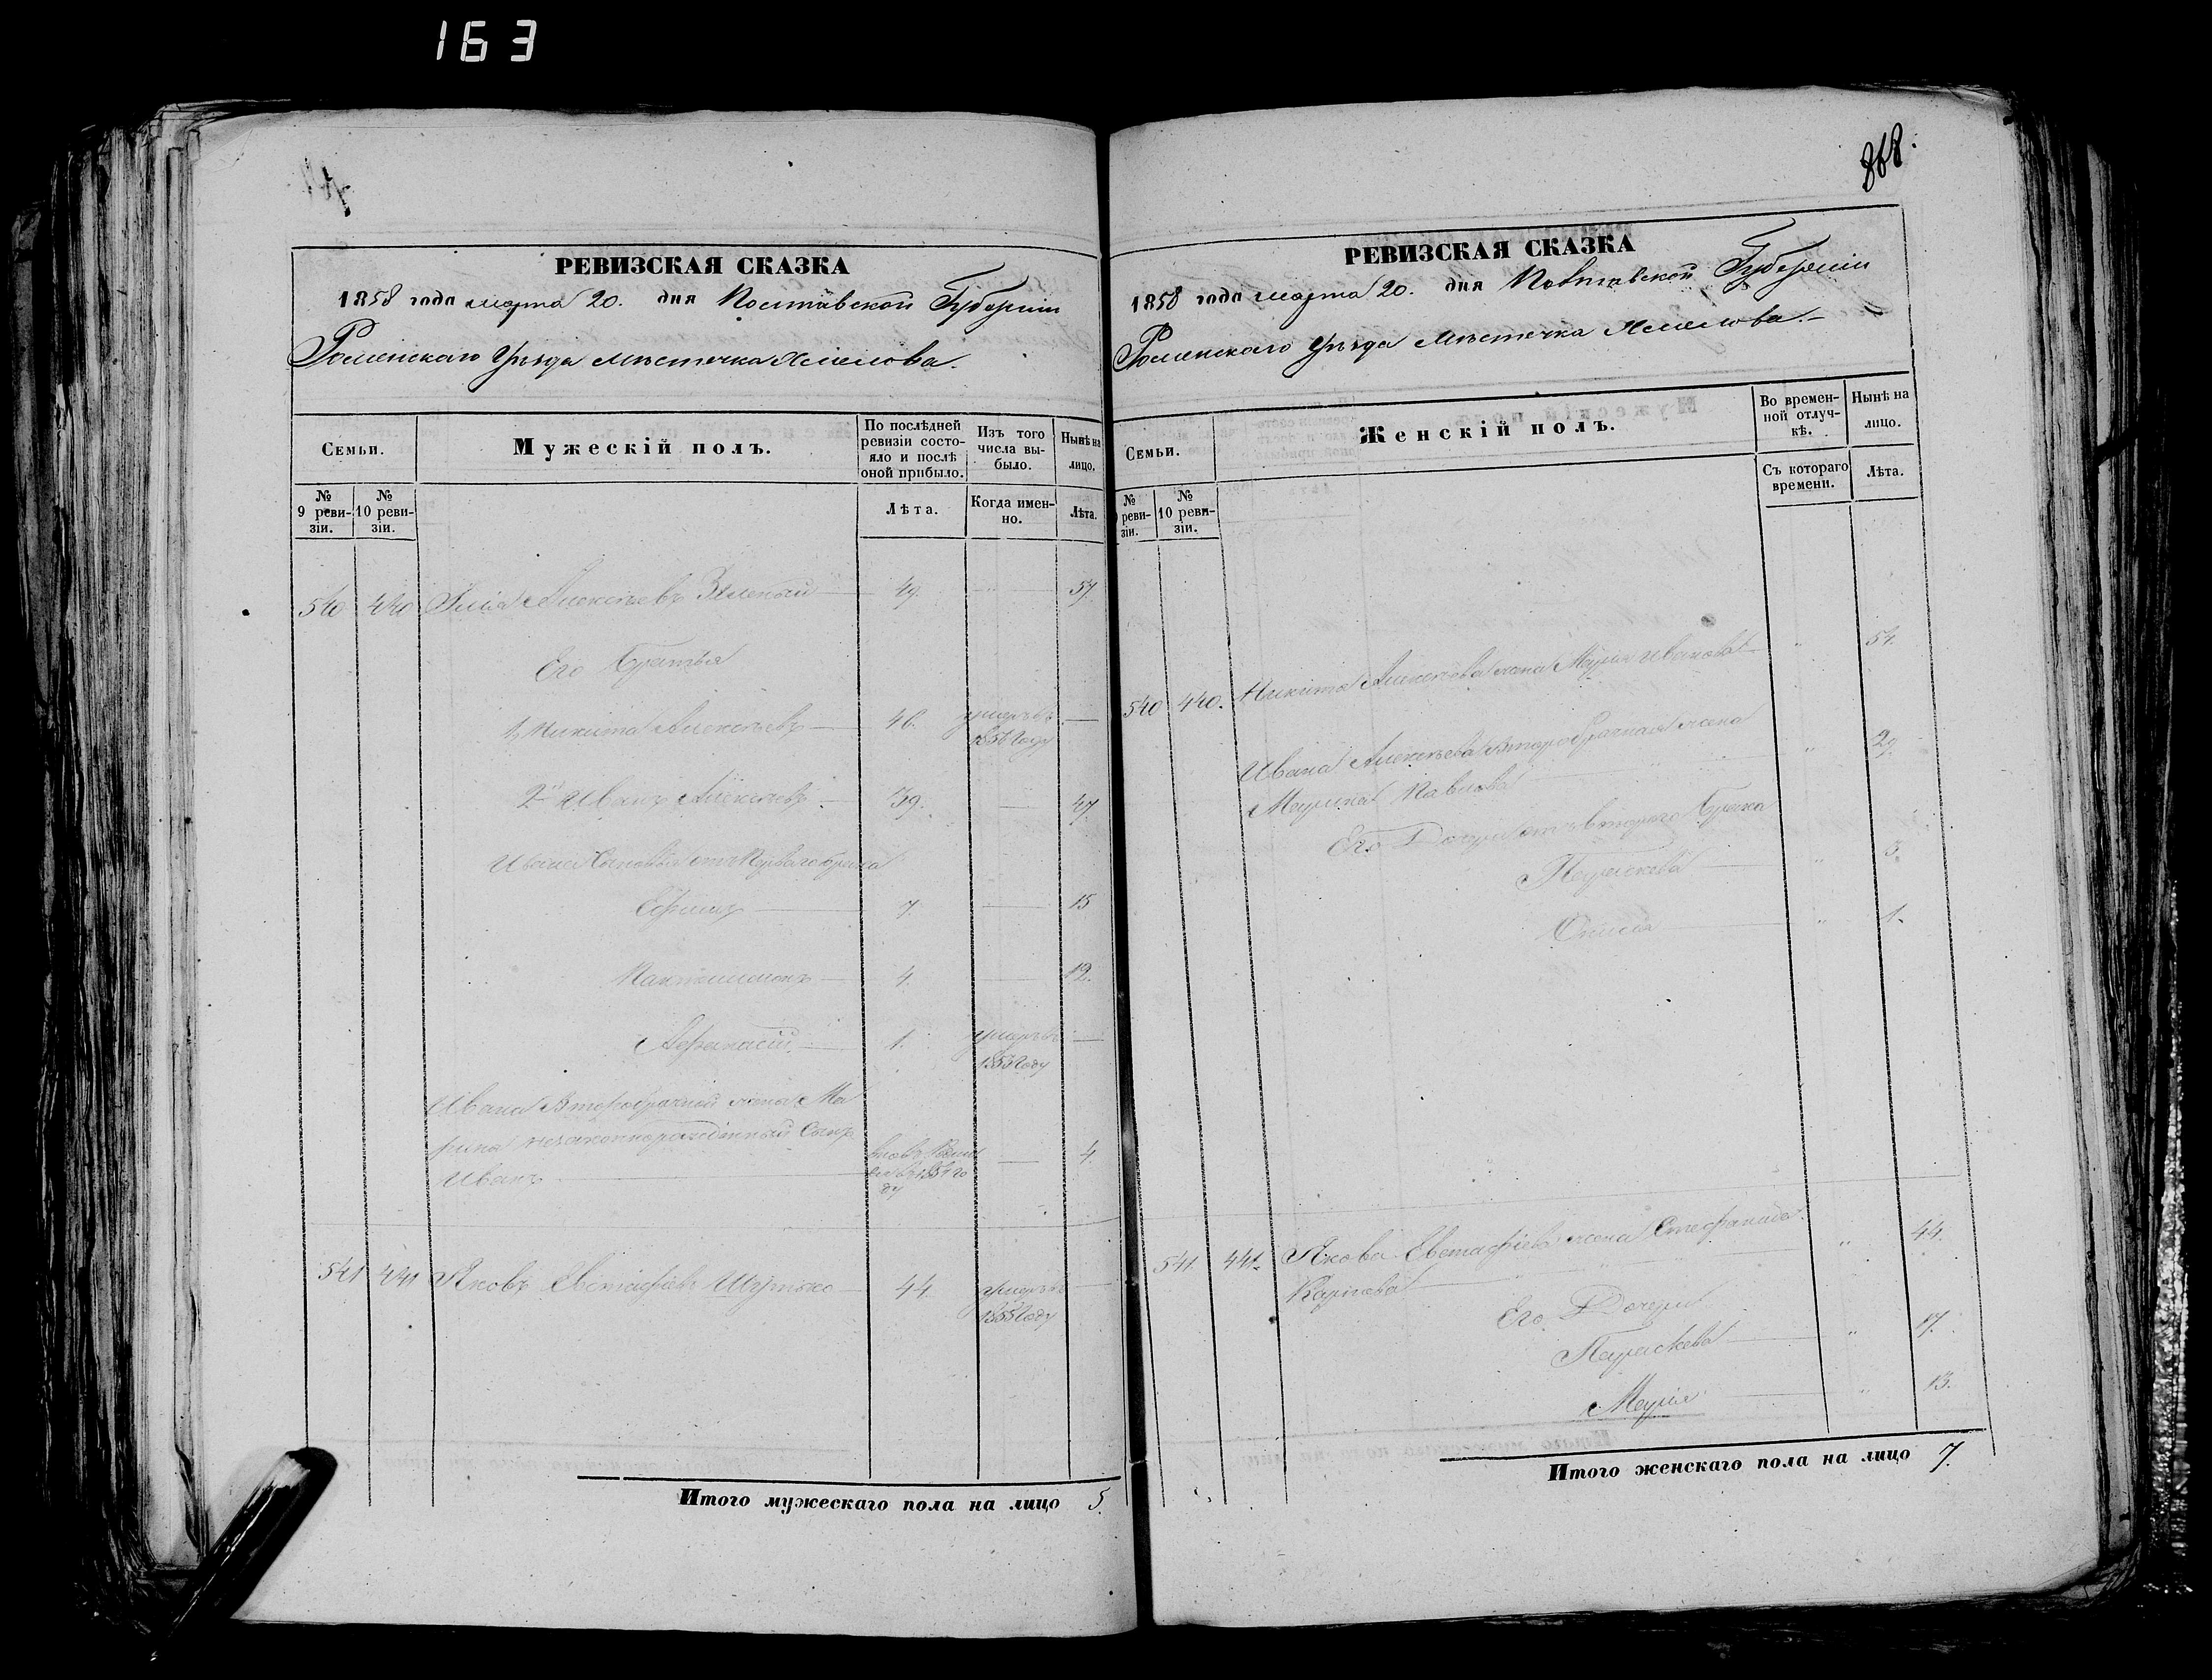 163
868.
РЕВИЗСКАЯ СКАЗКА
1858 года марта 20. дня Полтавской Губерніи
Роменскаго Уѣзда мѣстечка Смелова.
Семьи.
Мужескій полъ.
По послѣдней ревизіи состояло и послѣ оной прибыло.
Изъ того числа выбыло.
Нынѣ на лицо.
№ 9 ревизіи.
№ 10 ревизіи.
Лѣта.
Когда именно.
Лѣта.
540 440 Алексѣевъ Зеленый 49. 57.
Его Братья
1, Никита Алексѣевъ 46. умеръ въ 1856 году
2й Иванъ Алексѣевъ 39. 47.
Ивана Сыновья отъ Перваго брака
Ефимъ 7. 15
Пантелимонъ 4. 12.
Афанасій 1. умеръ въ 1855 году
Ивана Второбрачной жены Ма
рины незаконнорожденный Сынъ
Иванъ 4.
541 441 Яковъ Евстафіевъ 44 умеръ въ 1855 году
Итого мужескаго пола на лицо 5.
РЕВИЗСКАЯ СКАЗКА
1858 года марта 20. дня Полтавской Губерніи
Роменскаго Уѣзда мѣстечка Смелова.
Семьи.
Женскій полъ.
Во временной отлучкѣ.
Нынѣ на лицо.
№ 9 ревизіи.
№ 10 ревизіи.
Съ котораго времени.
Лѣта.
540 440. Никиты Алексѣева жена Марія Иванова " 54.
Ивана Алексѣева Второбрачная жена
Марина Павлова " 29.
Его Дочери отъ втораго Брака
Параскева " 3.
" 1.
541. 441. Якова Евстафіева жена Стефанида
Карпова " 44.
Его Дочери
Параскева " 17.
Марія " 13.
Итого женскаго пола на лицо 7.